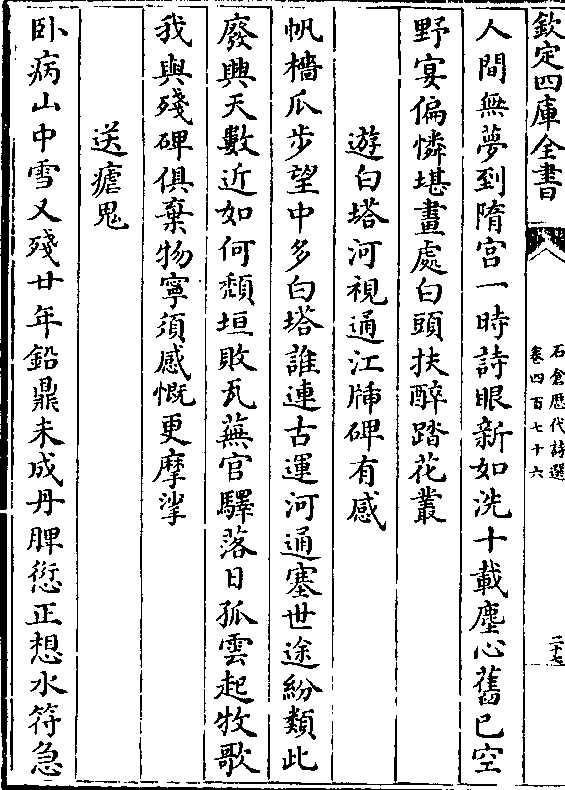 欽定四庫全書
石倉歴代詩選
卷四百七十六
二十七
人間無夢到隋宫一時詩眼新如洗十載塵心舊已空
野宴偏憐堪畫處白頭扶醉踏花叢
遊白塔河視通江牐碑有感
帆檣瓜步望中多白塔誰連古運河通塞世途紛類此
廢興天數近如何頽垣敗瓦蕪官驛落日孤雲起牧歌
我與殘碑俱棄物寧須感慨更摩挲
送瘧鬼
卧病山中雪又殘廿年鉛鼎未成丹脾愆正想水符急